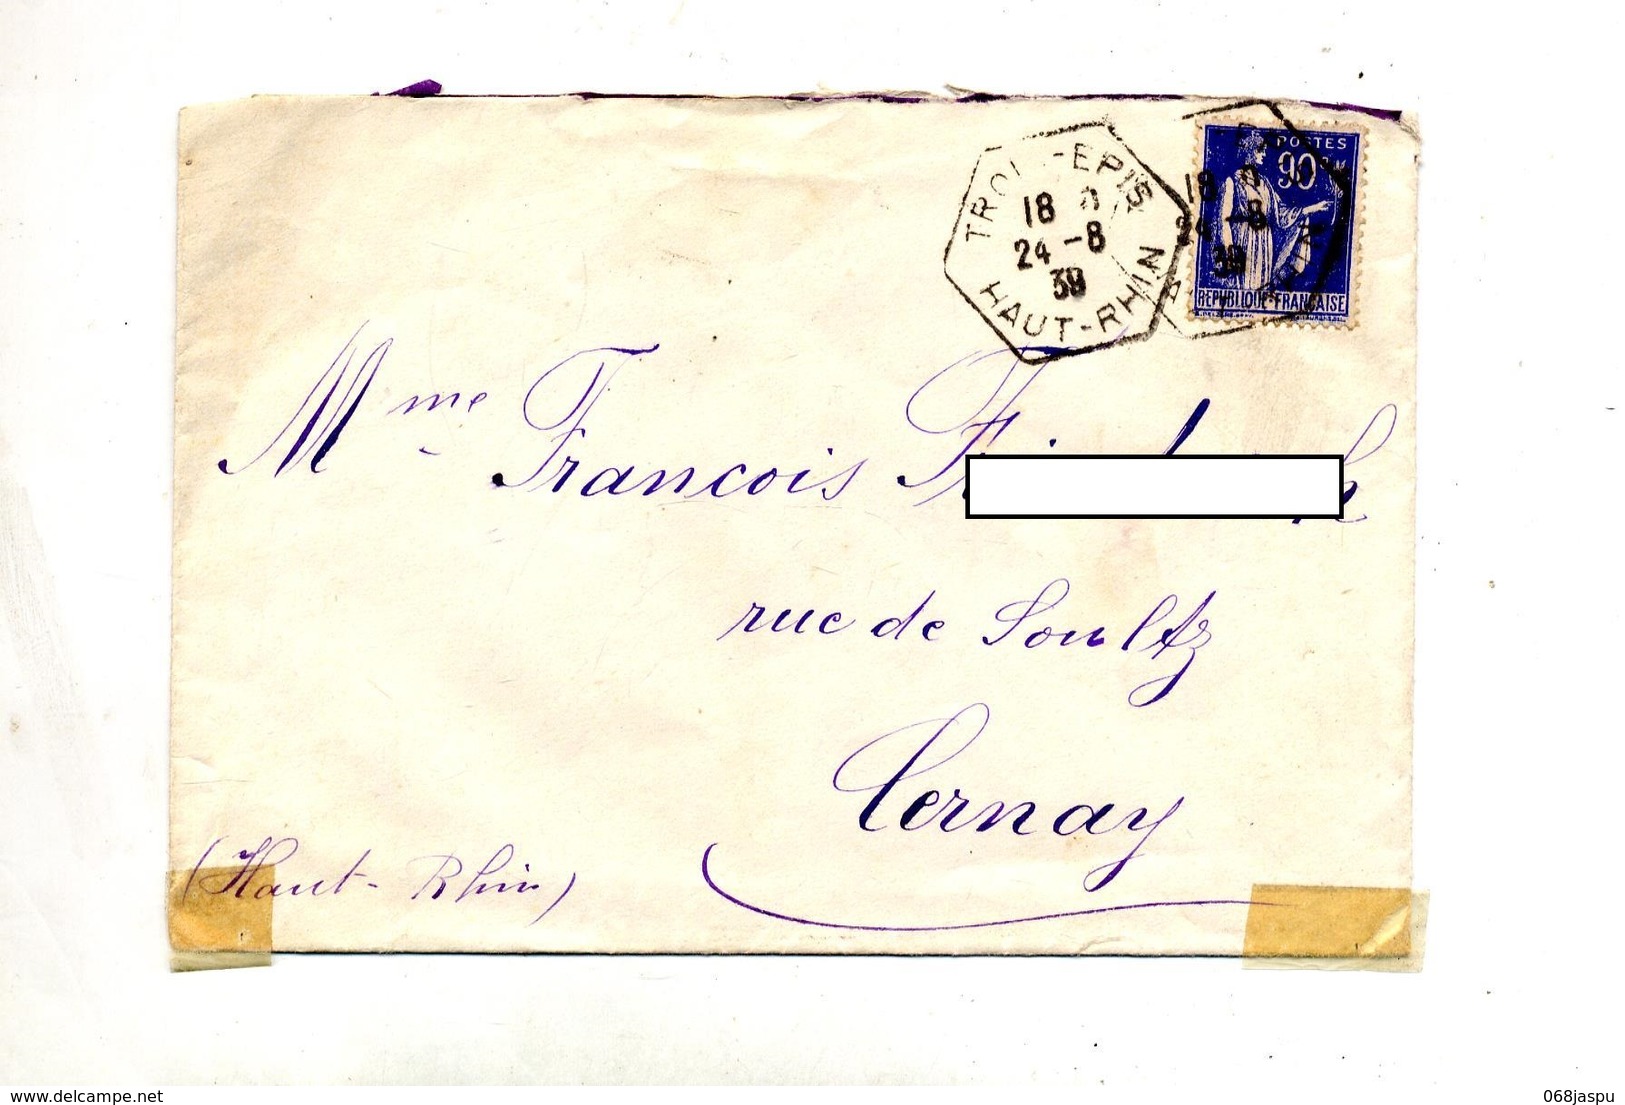 TROIS-EPIS
18 H
24 -8
38
HAUT-RHIN
POSTES
90
REPUBLIQUE FRANÇAISE
Mme Francois
rue de Soultz
Cernay
(Haut-Rhin)
www.delcampe.net
068jaspu